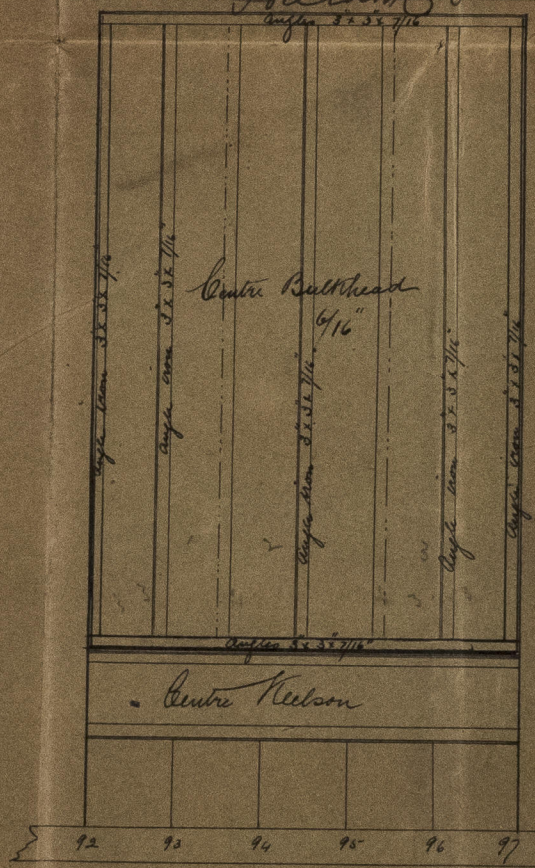 Angles 3 x 3 x 7/16
Angle iron 3" x 3" x 7/16
Angle iron 3" x 3" x 7/16"
Centre Bulkhead
6/16"
Angle iron 3" x 3" x 7/16"
Angle iron 3" x 3" x 7/16"
Angle iron 3" x 3" x 7/16"
Angles 3" x 3" x 7/16"
Centre Keelson
92 93 94 95 96 97